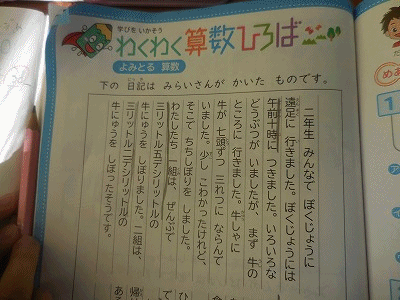 学びを いかそう
わくわく 算数ひろば
よみとる 算数
下の 日記は みらいさんが かいた ものです。
二年生 みんなで ぼくじょうに
遠足に 行きました。ぼくじょうには
午前十時に つきました。いろいろな
どうぶつが いましたが、まず 牛の
ところに 行きました。牛しゃに
牛が 七頭ずつ 三れつに ならんで
いました。少し こわかったけれど、
そこで ちちしぼりを しました。
わたしたち 一組は、ぜんぶで
三リットル五デシリットルの
牛にゅうを しぼりました。二組は、
三リットル二デシリットルの
牛にゅうを しぼったそうです。
1